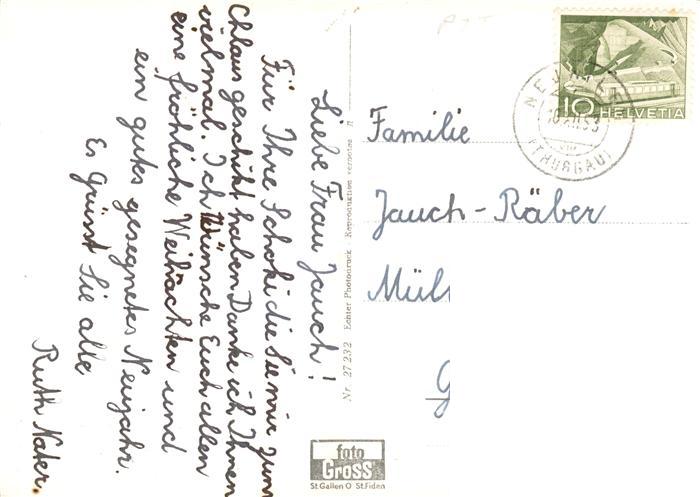 Liebe Frau Jauch!
Für Ihre Schoki die Sie mir zum
Chlaus geschikt haben Danke ich Ihnen
vielmal. Ich Wünsche Euch allen
eine fröhliche Weihachten und
ein gutes gesegnetes Neujahr.
Es Grüsst Sie alle
Ruth Nater.
Nr. 27 232 Echter Photodruck - Reproduktion verboten
foto
Gross
St.Gallen O St.Fiden
10 HELVETIA
(THURGAU)
Familie
Jauch-Räber
Mül
G